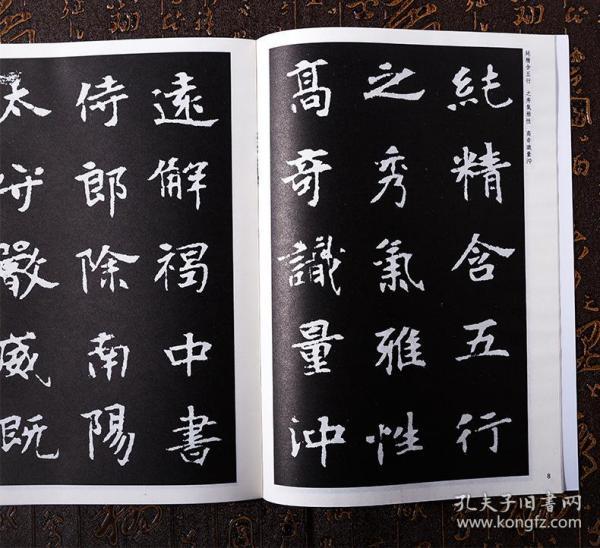 純精含五行　之秀氣雅性　高奇識量沖
純精含五行
之秀氣雅性
髙奇識量沖
遠解褐中書
侍郎除南陽
太守嚴威既
8
孔夫子旧书网
www.kongfz.com